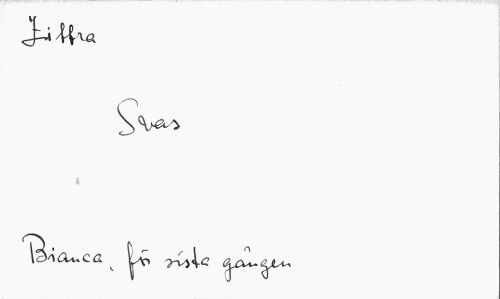 Ziffra
Svas
Bianca, för sista gången